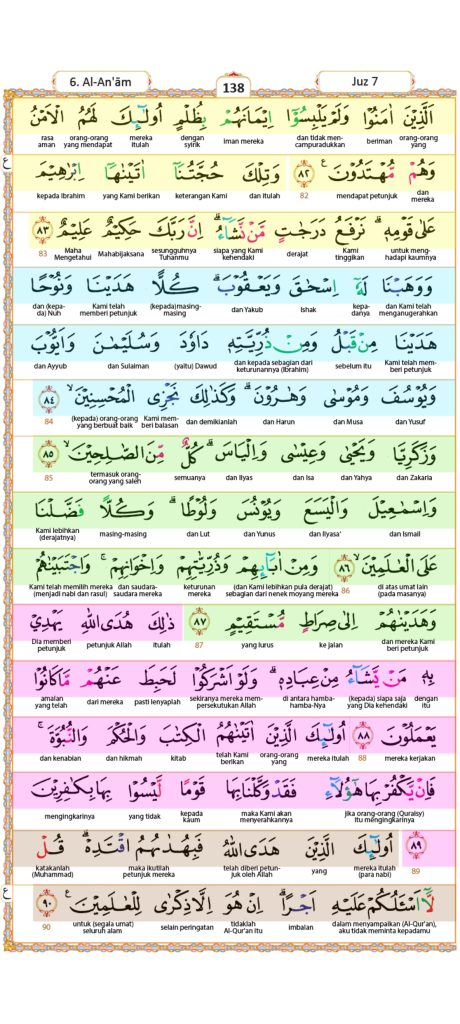 6. Al-An'ām
138
Juz 7
اَلَّذِيْنَ اٰمَنُوْا وَلَمْ يَلْبِسُوْٓا اِيْمَانَهُمْ بِظُلْمٍ اُولٰۤىِٕكَ لَهُمُ الْاَمْنُ
orang-orang yang beriman dan tidak mencampuradukkan iman mereka dengan syirik mereka itulah orang-orang yang mendapat rasa aman
وَهُمْ مُّهْتَدُوْنَ ࣖ ٨٢ وَتِلْكَ حُجَّتُنَآ اٰتَيْنٰهَآ اِبْرٰهِيْمَ
dan mereka mendapat petunjuk 82 dan itulah keterangan Kami yang Kami berikan kepada Ibrahim
عَلٰى قَوْمِهٖۗ نَرْفَعُ دَرَجٰتٍ مَّنْ نَّشَاۤءُۗ اِنَّ رَبَّكَ حَكِيْمٌ عَلِيْمٌ ٨٣
untuk menghadapi kaumnya Kami tinggikan derajat siapa yang Kami kehendaki sesungguhnya Tuhanmu Mahabijaksana Maha Mengetahui 83
وَوَهَبْنَا لَهٗٓ اِسْحٰقَ وَيَعْقُوْبَۗ كُلًّا هَدَيْنَا وَنُوْحًا
dan Kami telah menganugerahkan kepadanya Ishak dan Yakub (kepada)masing-masing Kami telah memberi petunjuk dan (kepada) Nuh
هَدَيْنَا مِنْ قَبْلُ وَمِنْ ذُرِّيَّتِهٖ دَاوٗدَ وَسُلَيْمٰنَ وَاَيُّوْبَ
Kami telah memberi petunjuk sebelum itu dan kepada sebagian dari keturunannya (Ibrahim) (yaitu) Dawud dan Sulaiman dan Ayyub
وَيُوْسُفَ وَمُوْسٰى وَهٰرُوْنَۗ وَكَذٰلِكَ نَجْزِى الْمُحْسِنِيْنَۙ ٨٤
dan Yusuf dan Musa dan Harun dan demikianlah Kami memberi balasan (kepada) orang-orang yang berbuat baik 84
وَزَكَرِيَّا وَيَحْيٰى وَعِيْسٰى وَاِلْيَاسَۗ كُلٌّ مِّنَ الصّٰلِحِيْنَۙ ٨٥
dan Zakaria dan Yahya dan Isa dan Ilyas semuanya termasuk orang-orang yang saleh 85
وَاِسْمٰعِيْلَ وَالْيَسَعَ وَيُوْنُسَ وَلُوْطًاۗ وَكُلًّا فَضَّلْنَا
dan Ismail dan Ilyasa' dan Yunus dan Lut masing-masing Kami lebihkan (derajatnya)
عَلَى الْعٰلَمِيْنَۙ ٨٦ وَمِنْ اٰبَاۤىِٕهِمْ وَذُرِّيّٰتِهِمْ وَاِخْوَانِهِمْۚ وَاجْتَبَيْنٰهُمْ
di atas umat lain (pada masanya) 86 (dan Kami lebihkan pula derajat) sebagian dari nenek moyang mereka keturunan mereka dan saudara-saudara mereka Kami telah memilih mereka (menjadi nabi dan rasul)
وَهَدَيْنٰهُمْ اِلٰى صِرَاطٍ مُّسْتَقِيْمٍ ٨٧ ذٰلِكَ هُدَى اللّٰهِ يَهْدِيْ
dan mereka Kami beri petunjuk ke jalan yang lurus 87 itulah petunjuk Allah Dia memberi petunjuk
بِهٖ مَنْ يَّشَاۤءُ مِنْ عِبَادِهٖۗ وَلَوْ اَشْرَكُوْا لَحَبِطَ عَنْهُمْ مَّا كَانُوْا
dengan itu (kepada) siapa saja yang Dia kehendaki di antara hamba-hamba-Nya sekiranya mereka mempersekutukan Allah pasti lenyaplah dari mereka amalan yang telah
يَعْمَلُوْنَ ٨٨ اُولٰۤىِٕكَ الَّذِيْنَ اٰتَيْنٰهُمُ الْكِتٰبَ وَالْحُكْمَ وَالنُّبُوَّةَۚ
mereka kerjakan 88 mereka itulah orang-orang yang telah Kami berikan kitab dan hikmah dan kenabian
فَاِنْ يَّكْفُرْ بِهَا هٰٓؤُلَاۤءِ فَقَدْ وَكَّلْنَا بِهَا قَوْمًا لَّيْسُوْا بِهَا بِكٰفِرِيْنَ
jika orang-orang (Quraisy) itu mengingkarinya maka Kami akan menyerahkannya kepada kaum yang tidak mengingkarinya
٨٩ اُولٰۤىِٕكَ الَّذِيْنَ هَدَى اللّٰهُ فَبِهُدٰىهُمُ اقْتَدِهْۗ قُلْ
89 mereka itulah (para nabi) yang telah diberi petunjuk oleh Allah maka ikutilah petunjuk mereka katakanlah (Muhammad)
لَّآ اَسْـَٔلُكُمْ عَلَيْهِ اَجْرًاۗ اِنْ هُوَ اِلَّا ذِكْرٰى لِلْعٰلَمِيْنَ ࣖ ٩٠
dalam menyampaikan (Al-Qur'an), aku tidak meminta kepadamu imbalan tidaklah Al-Qur'an itu selain peringatan untuk (segala umat) seluruh alam 90
ع
ع